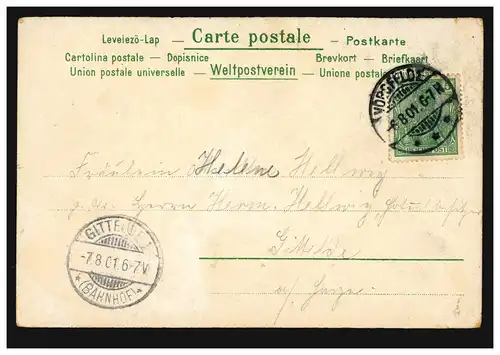 Levelezö-Lap — Carte postale — Postkarte
Cartolina postale — Dopisnice Brevkort — Briefkaart
Union postale universelle — Weltpostverein — Unione postale
VORSFELDE
-6.8.01.6-7N.
Fräulein Hellene Hellwig
Herrn Herm. Hellwig
Gittelde
a/ Harze.
GITTELDE
-7.8.01.6-7V
*(BAHNHOF)*